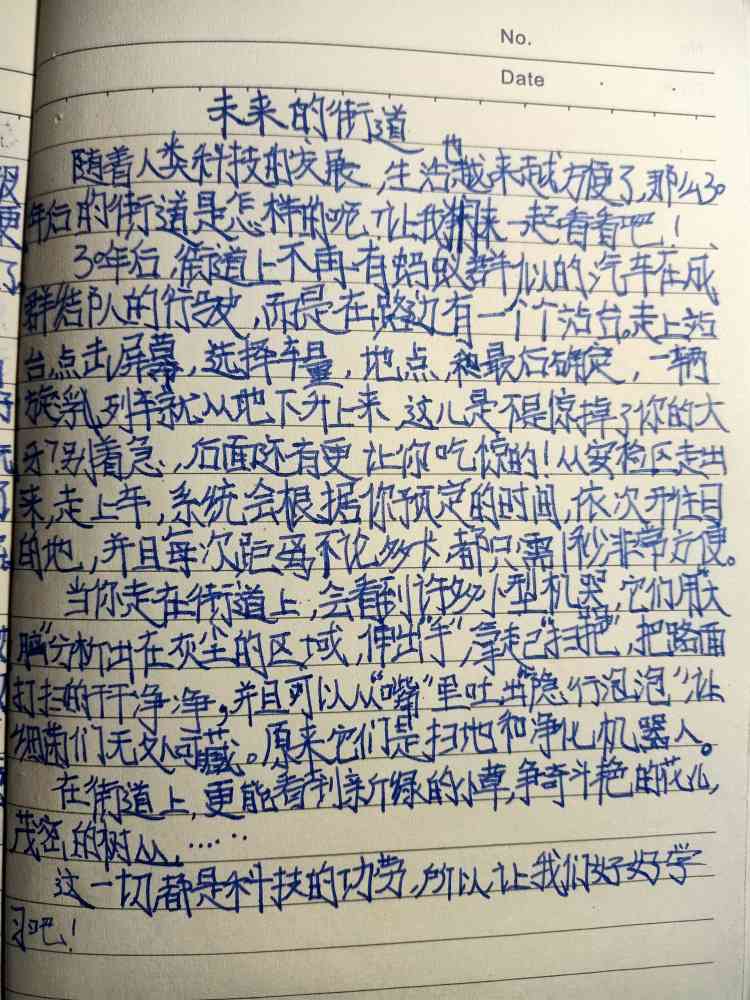 No.
Date
未来的街道
随着人类科技的发展,生活也越来越方便了,那么30
年后的街道是怎样的呢,让我们来一起看看吧!
30年后,街道上不再有蚂蚁群似的汽车在成
群结队的行驶,而是在路边有一个个站台。走上站
台,点击屏幕,选择车量,地点,和最后确定,一辆
旋乳列车就从地下升上来,这儿是不是惊掉了你的大
牙?别着急,后面还有更让你吃惊的!从安检区走出
来,走上车,系统会根据你预定的时间,依次开往目
的地,并且每次距离不论多长,都只需1秒非常方便。
当你走在街道上,会看到许多小型机器,它们用“大
脑”分析出在灰尘的区域,伸出“手”,拿起“扫把”,把路面
打扫的干干净净,并且可以从“嘴”里吐出“隐行泡泡”让
细菌们无处可藏。原来它们是扫地和净化机器人。
在街道上,更能看到新绿的小草,争奇斗艳的花儿,
茂密的树丛……
这一切都是科技的功劳,所以让我们好好学
习吧!